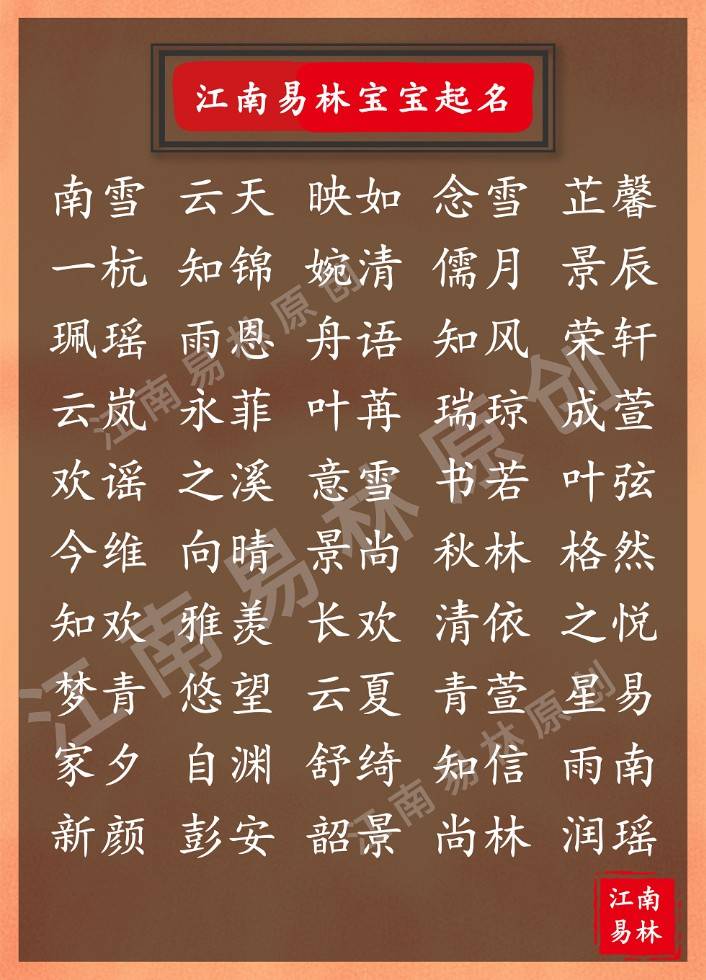 江南易林宝宝起名
南雪 云天 映如 念雪 芷馨
一杭 知锦 婉清 儒月 景辰
珮瑶 雨恩 舟语 知风 荣轩
云岚 永菲 叶苒 瑞琼 成萱
欢谣 之溪 意雪 书若 叶弦
今维 向晴 景尚 秋林 格然
知欢 雅羡 长欢 清依 之悦
梦青 悠望 云夏 青萱 星易
家夕 自渊 舒绮 知信 雨南
新颜 彭安 韶景 尚林 润瑶
江南易林原创
江南易林原创
江南易林原创
江南
易林